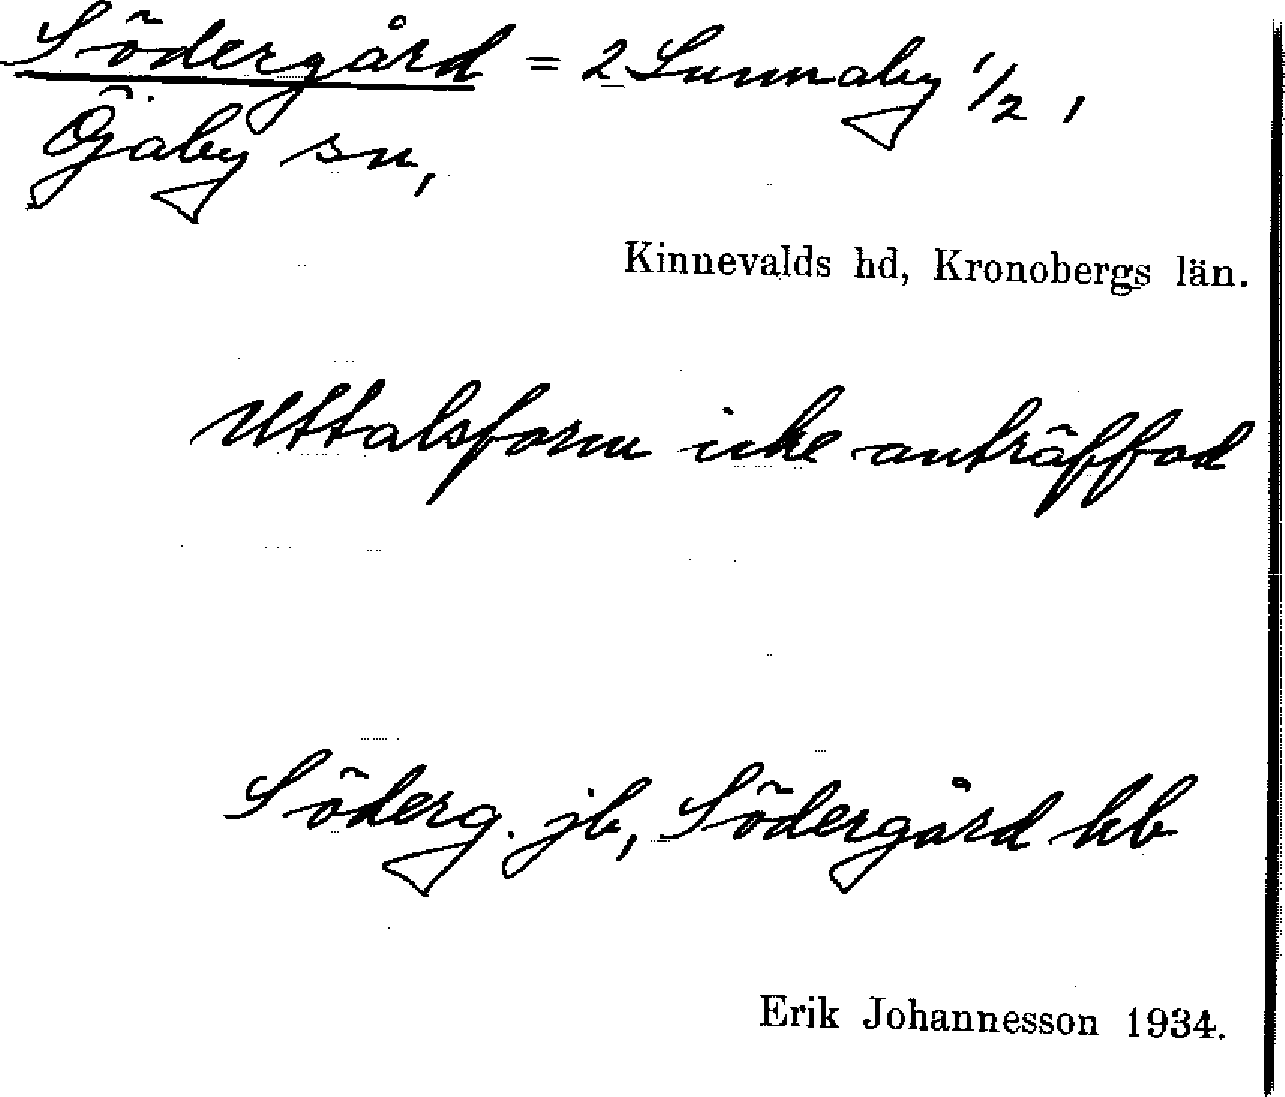 Södergård = 2 Lunnaby 1/2,
Öjaby sn,
Kinnevalds hd, Kronobergs län.
Uttalsform icke anträffad
Söderg. jb, Södergård hb
Erik Johannesson 1934.